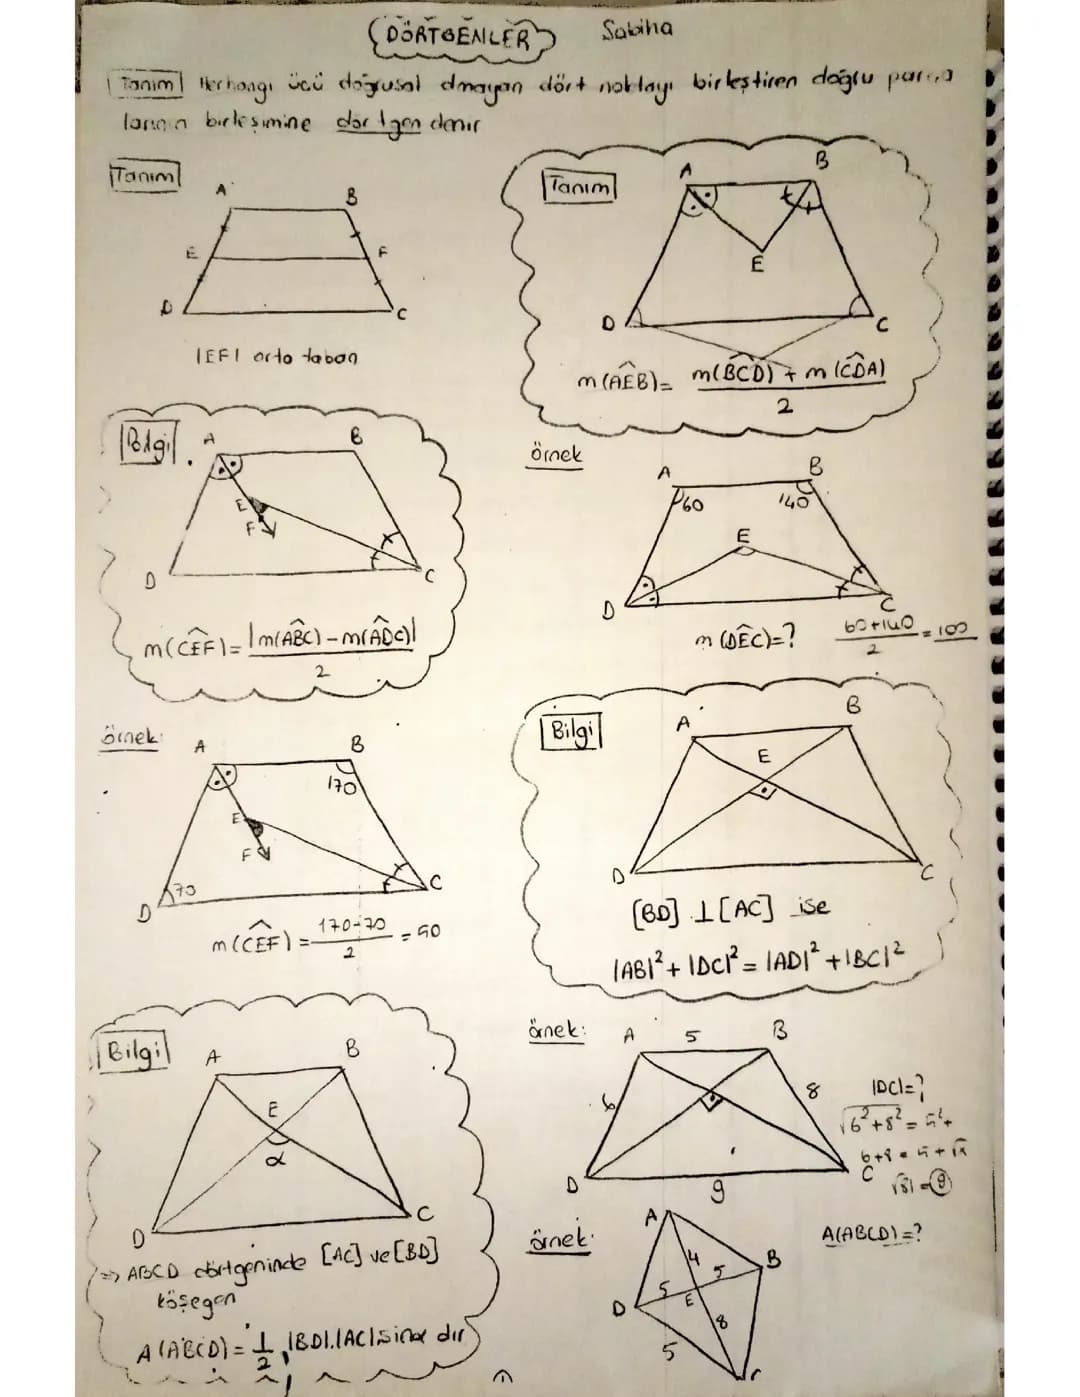 DÖRTGENLER Sabiha
Tanım Herhangi üçü doğrusal olmayan dört noktayı birleştiren doğru
birleşimine dörtgen denir
Tanım
A B
E F
D C
|EF| orta taban
Tanım
A B
E
D C
m(AÊB)= m(BĈD) + m(CD̂A)
2
Bilgi
A B
E
F
D C
m(CÊF)= |m(AB̂C) - m(AD̂C)|
2
örnek
A B
60 140
E
D C
m(DÊC)=? 60+140 = 100
2
örnek:
A B
170
E
F
70
D C
m(CÊF) = 170-70 = 50
2
Bilgi
A B
E
D C
[BD] ⊥ [AC] ise
|AB|² + |DC|² = |AD|² + |BC|²
Bilgi
A B
E
α
D C
=> ABCD dörtgeninde [AC] ve [BD]
köşegen
A(ABCD) = 1 |BD|.|AC| sinα dır
2
örnek:
A 5 B
6 8
D 9 C
|DC|=?
√6²+8² =
√81 = 9
örnek:
A
4 5 B
D 5 E
8
5
C
A(ABCD)=?
1